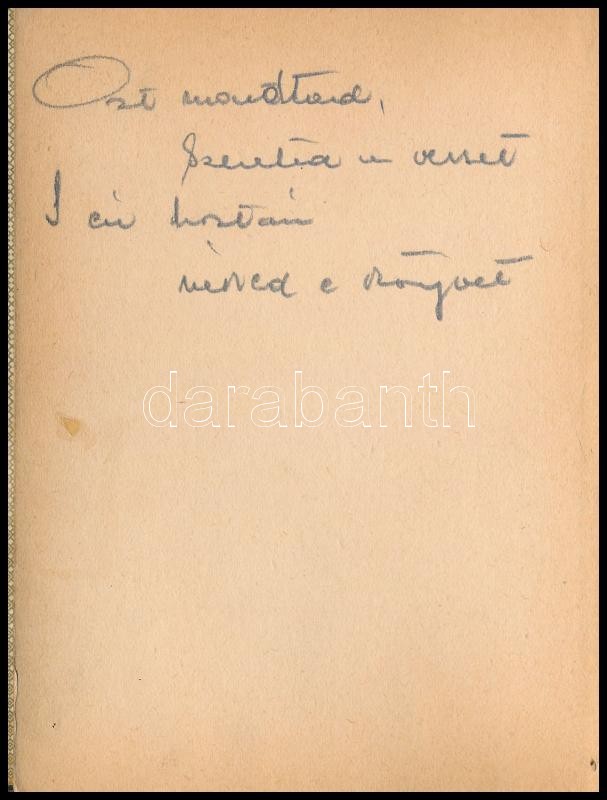 Ozt mondtad,
Szereted a verset
S én hoztam
néked e könyvet
darabanth